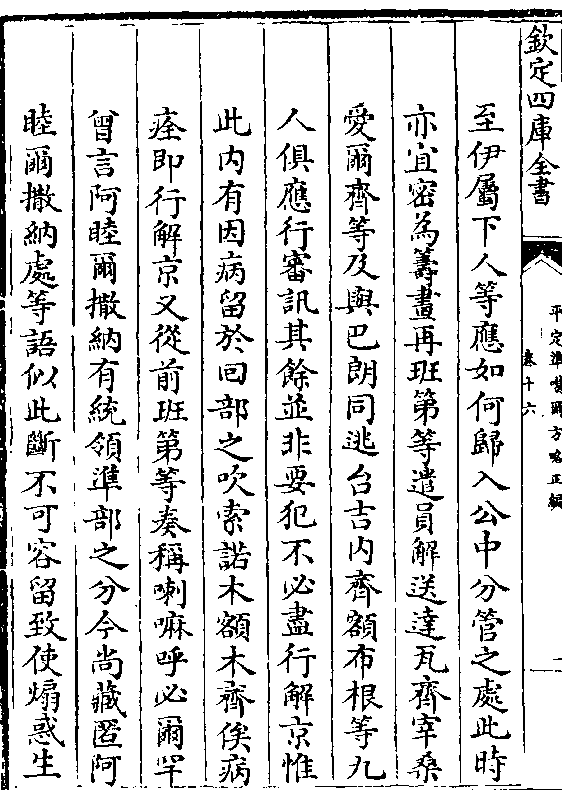 欽定四庫全書
平定準噶爾方略正編
卷十六
至伊屬下人等應如何歸入公中分管之處此時
亦宜密為籌畫再班第等遣員解送達瓦齊宰桑
愛爾齊等及與巴朗同逃台吉內齊額布根等九
人俱應行審訊其餘並非要犯不必盡行解京惟
此內有因病留於回部之吹索諾木額木齊俟病
痊即行解京又從前班第等奏稱喇嘛呼必爾罕
曾言阿睦爾撒納有統領準部之分今尚藏匿阿
睦爾撒納處等語似此斷不可容留致使煽惑生